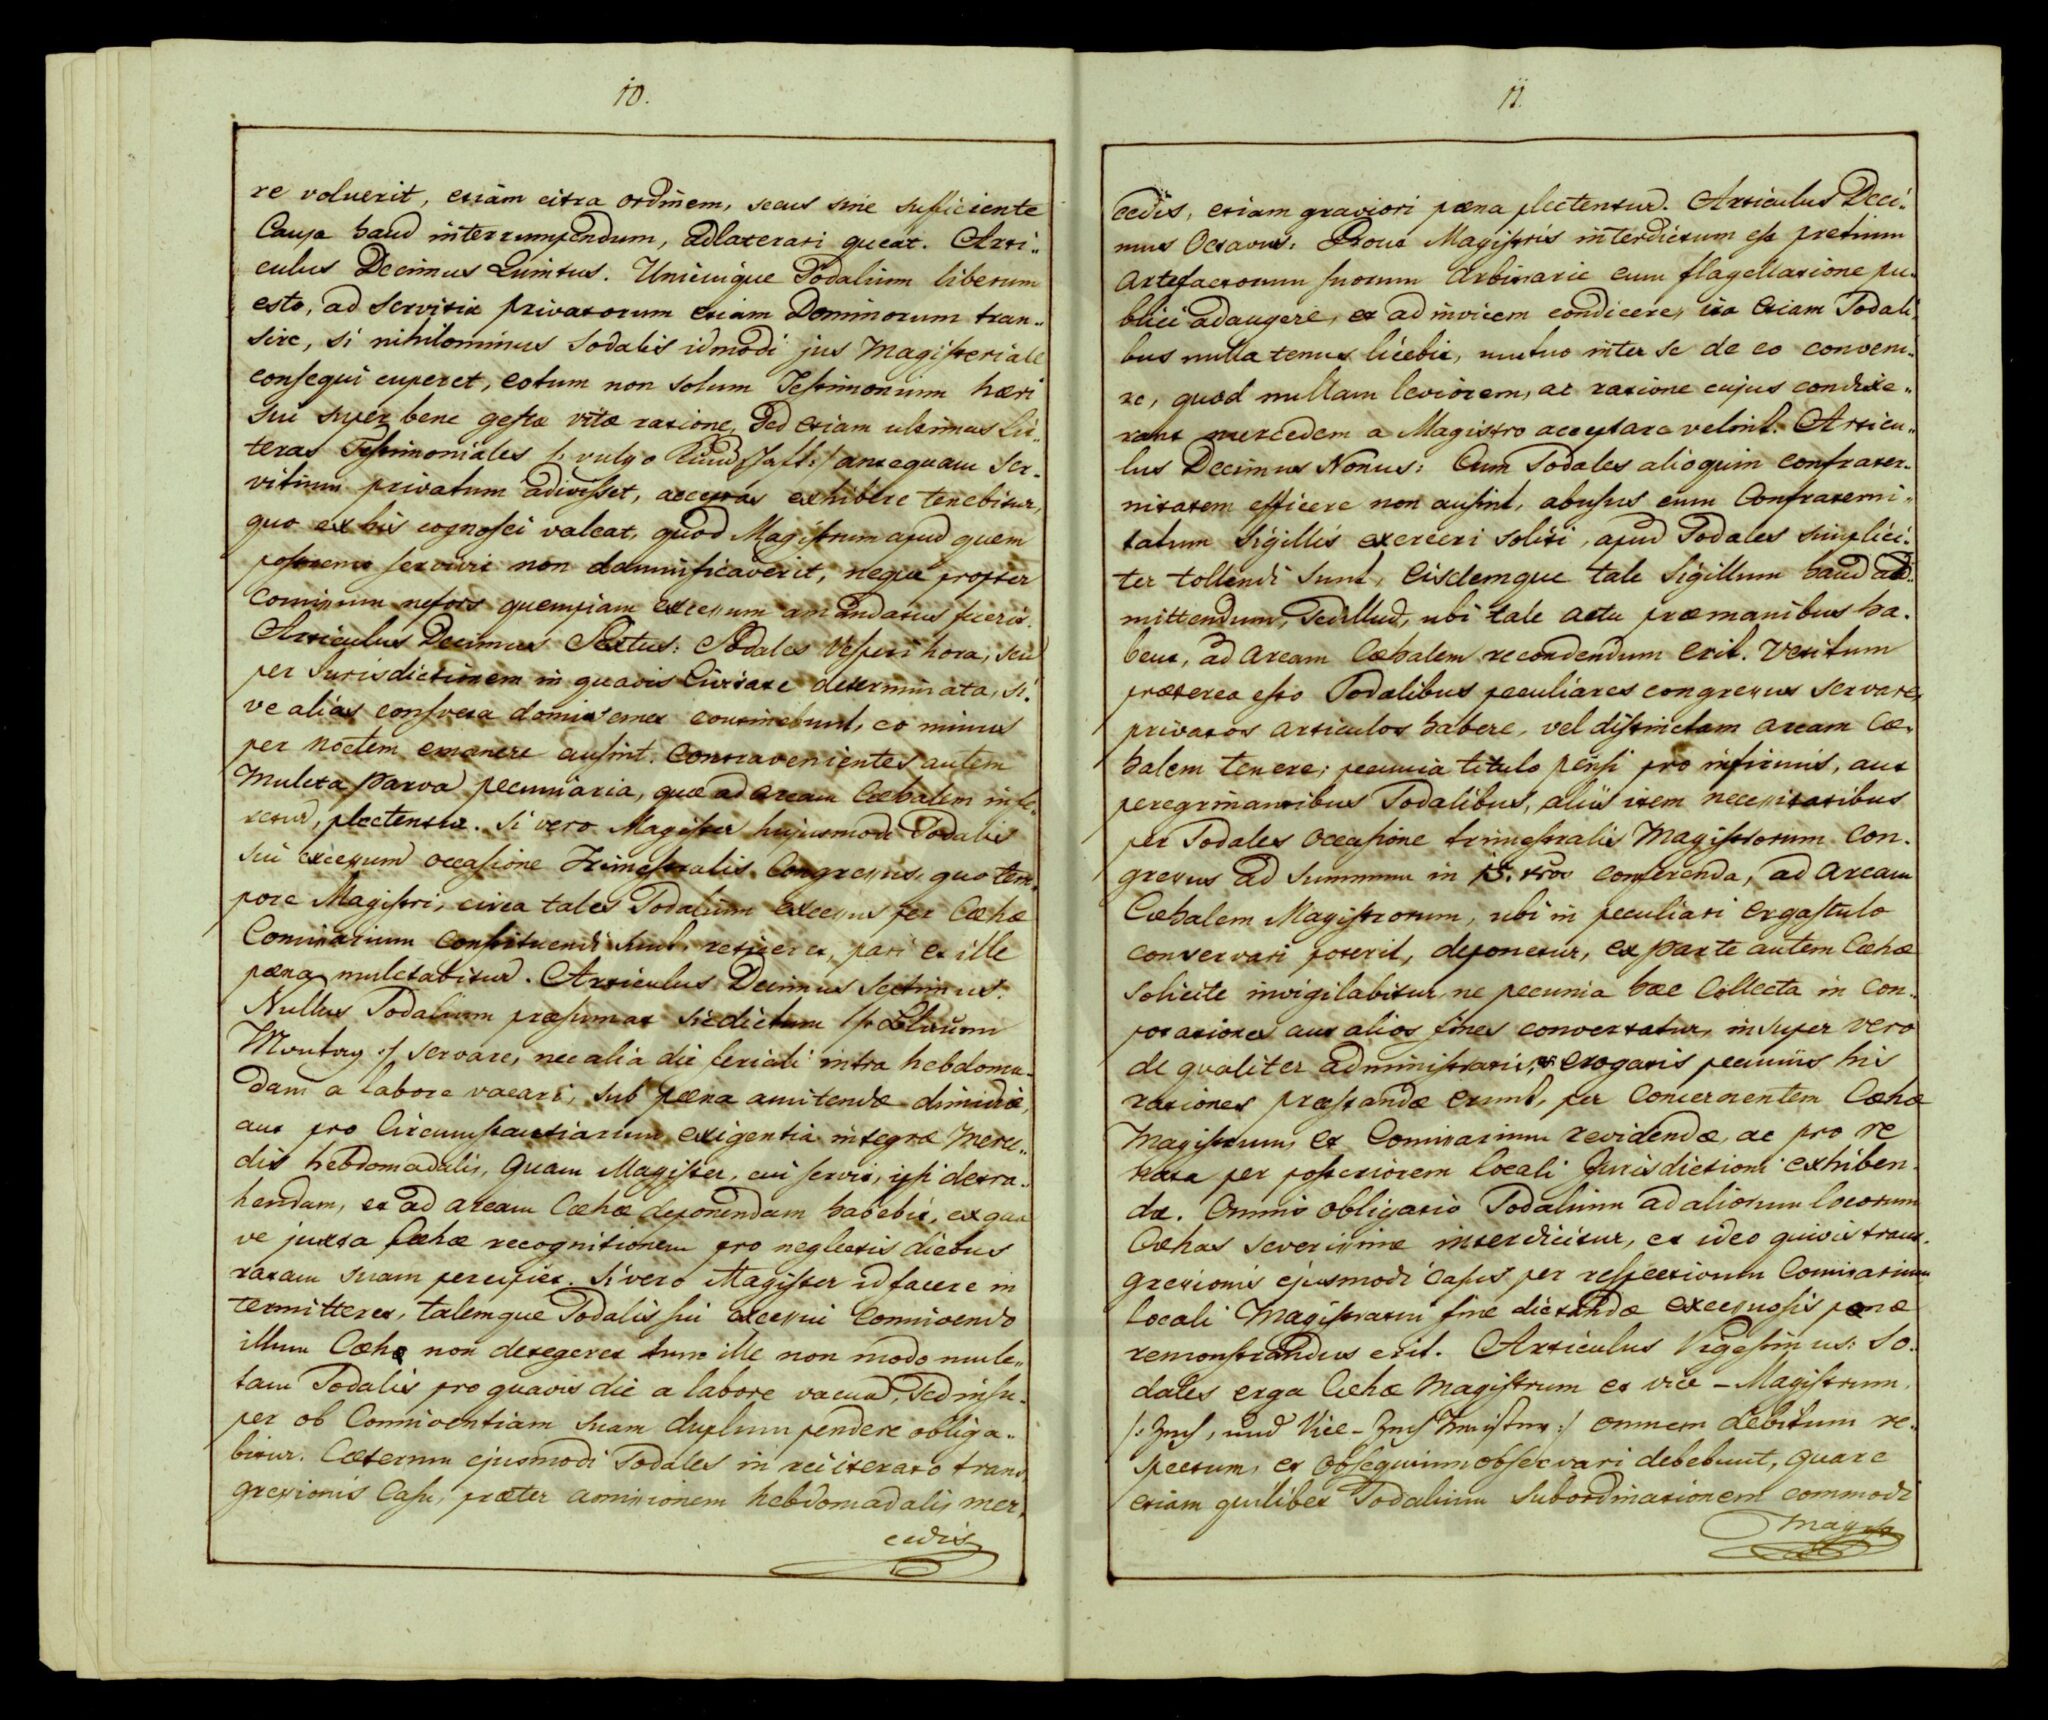 10.
re voluerit, etiam citra ordinem, secus sine sufficiente
Causa haud interrumpendum, adlaterari queat. Arti-
culus Decimus Quintus. Unicuique Sodalium liberum
esto, ad servitia privatorum etiam Dominorum tran-
sire, si nihilominus Sodalis idmodi jus Magisteriale
consequi cuperet, eotum non solum Testimonium hæri
sui super bene gestæ vitæ ratione, sed etiam ultimas Lit-
teras Testimoniales /: vulgo Kundschaft :/ antequam Ser-
vitium privatum adivisset, acceptas exhibere tenebitur,
quo ex his cognosci valeat, quod Magistrum apud quem
postremo servivit non damnificaverit, neque propter
Comissum nefors quempiam excessum amandatus fuerit.
Articulus Decimus Sextus: Sodales Vesperi hora, seu
per Jurisdictionem in quavis Civitate determinata, si-
ve alias consveta domi semet continebunt, eo minus
per Noctem emanere ausint. Contravenientes autem
Mulcta parva pecuniaria, quæ ad arcam Cæhalem infe-
retur, plectentur. Si vero Magister hujusmodi Sodalis
sui excessum occasione Trimestralis Congressus, quo tem-
pore Magistri, circa tales Sodalium excessus per Cæhæ
Comissarium constituendi sunt, reticeret, pari et ille
pæna mulctabitur. Articulus Decimus Septimus.
Nullus Sodalium præsumat sic dictum /: Blauen
Montag :/ servare, nec alia die feriali intra hebdoma-
dam a labore vacari, sub pæna amittendæ dimidiæ,
aut pro Circumstantiarum exigentia integræ Merce-
dis hebdomadalis, quam Magister, cui servit, ipsi detra-
hendam, et ad arcam Cæhæ deponendam habebit, ex qua
ve juxta Cæhæ recognitionem pro neglectis diebus
ratam suam percipiet. Si vero Magister id facere in
termitteret, talemque Sodalis sui excessui Connivendo
illum Cæhæ non detegeret tunc ille non modo mulc-
tam Sodalis pro quavis die a labore vacua, sed insu-
per ob Conniventiam suam duplum pendere obliga-
bitur. Cæterum ejusmodi Sodales in reiterato trans
gressionis Casu, præter amissionem hebdomadalis mer-
cedis
11.
cedis, etiam graviori pæna plectentur. Articulus Deci-
mus Octavus: Prout Magistris interdictum est pretium
artefactorum suorum Arbitrarie cum flagellatione pu-
blici adaugere, et ad invicem condicere, ita etiam Sodali-
bus nulla tenus licebit, mutuo inter se de eo conveni-
re, quod nullam leviorem, ac ratione cujus condixe-
rant mercedem a Magistro acceptare velint. Articu-
lus Decimus Nonus: Cum Sodales alioquin confrater-
nitatem efficere non ausint, abusus cum Confraterni-
tatum Sigillis exerceri soliti, apud Sodales simplici-
ter tollendi sunt, eisdemque tale Sigillum haud ad-
mittendum, sed illud, ubi tale actu præ manibus ha-
bent, ad arcam Cæhalem recondendum erit. Vetitum
præterea esto Sodalibus peculiares congressus servare,
privatos articulos habere, vel distinctam arcam Cæ-
halem tenere; pecunia titulo pensi pro infirmis, aut
peregrinantibus Sodalibus, aliis item necessitatibus
per Sodales occasione trimestralis Magistrorum Con-
gressus ad summum in 15. xros conferenda, ad arcam
Cæhalem Magistrorum, ubi in peculiari ergastulo
conservari poterit, deponetur, ex parte autem Cæhæ
solicite invigilabitur, ne pecunia hæc Collecta in Con-
potationes aut alios fines convertatur, insuper vero
de qualiter administratis, et erogatis pecuniis his
rationes præstandæ erunt, per Concernentem Cæhæ
Magistrum, et Comissarium revidendæ, ac pro re
nata per posteriorem locali Jurisdictioni exhiben-
dæ. Omnis obligatio Sodalium ad aliorum locorum
Cæhas severissime interdicitur, et ideo quivis trans-
gressionis ejusmodi Casus per respectivum Comissarium
locali Magistratui fine dictandæ excessuosis pænæ
remonstrandus erit. Articulus Vigesimus: So-
dales erga Cæhæ Magistrum et vice-Magistrum,
/: Zech, und Vice-Zech Meister :/ omnem debitum re-
spectum, et obsequium observari debebunt, quare
etiam quilibet Sodalium subordinationem commodi
Magist